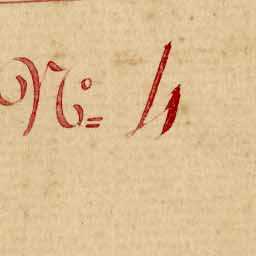 Nº 4